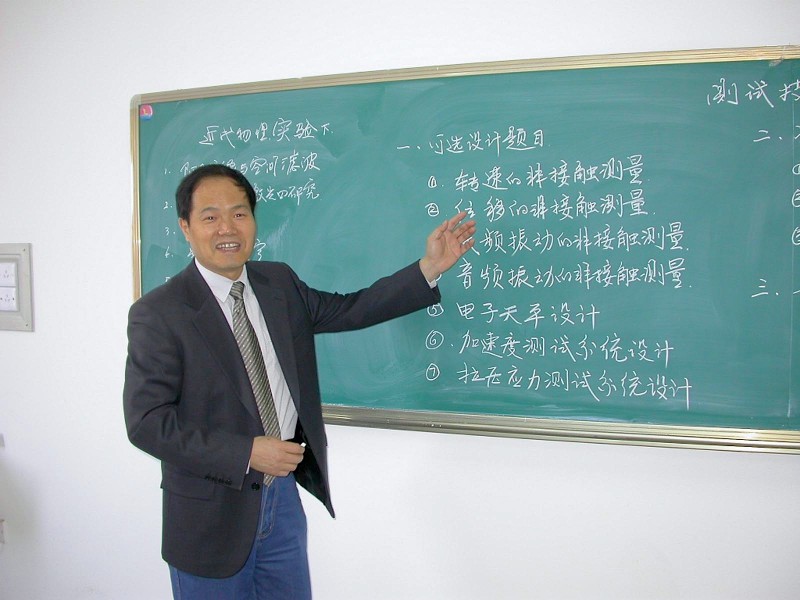 近代物理实验下.
1. 与空间滤波
2. 的研究
3.
6.
测试技
一、可选设计题目
①. 转速的非接触测量.
② 位移的非接触测量.
频振动的非接触测量.
音频振动的非接触测量.
⑤ 电子天平设计
⑥. 加速度测试系统设计
⑦ 拉压应力测试系统设计
二、
三、